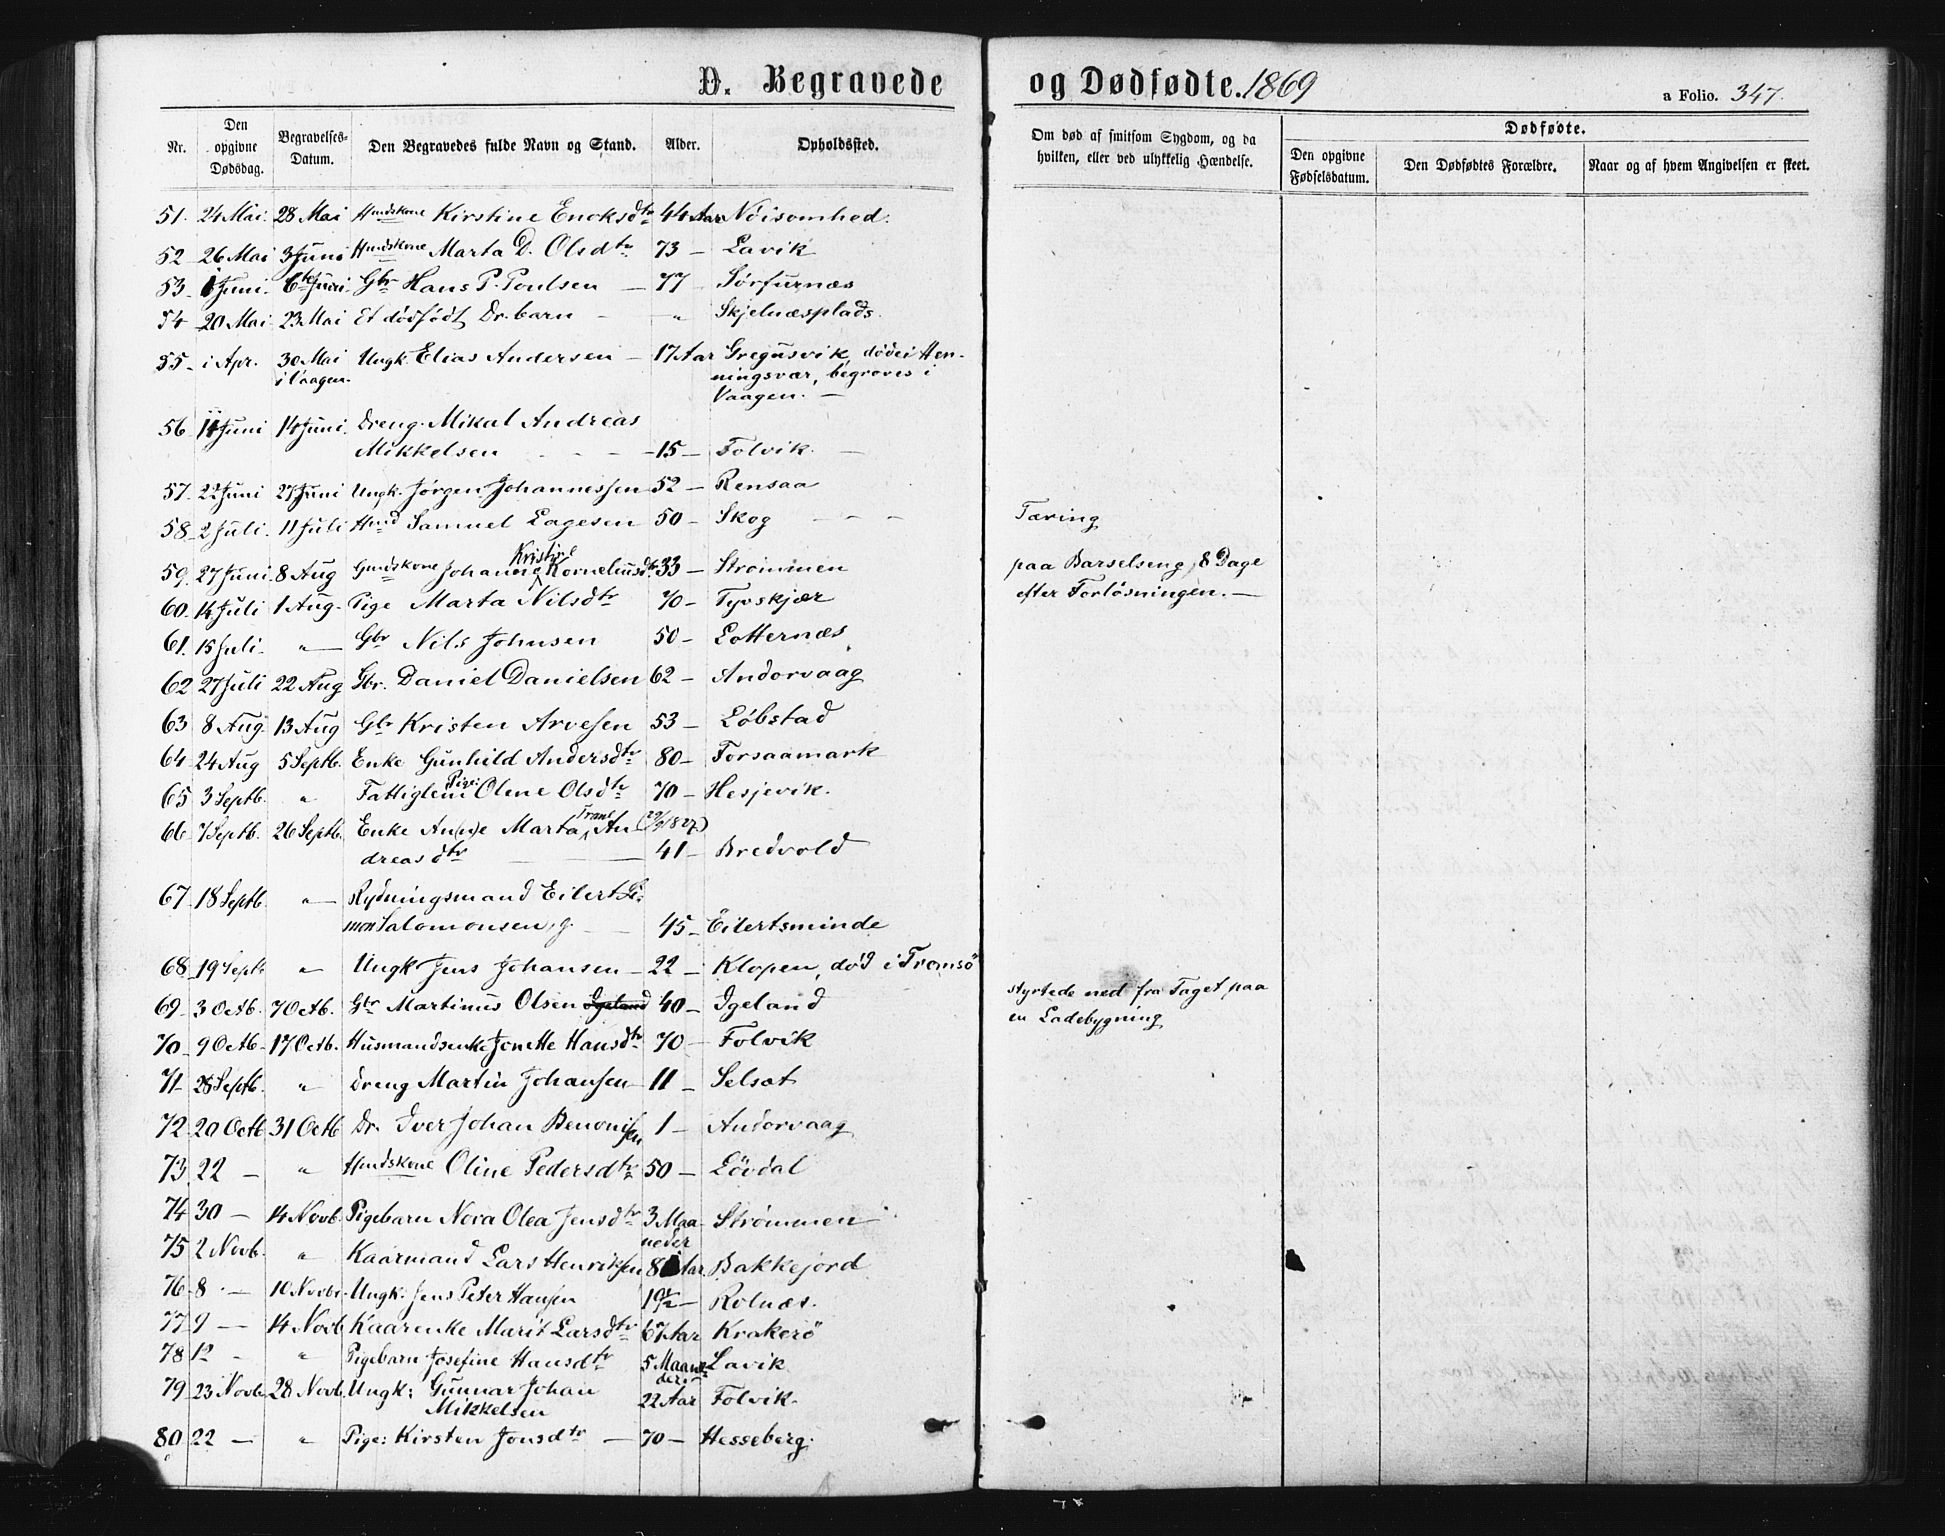 D. Begravede og Dødfødte. 1869 a Folio. 347.
Nr. Den opgivne Dødsdag. Begravelses-Datum. Den Begravedes fulde Navn og Stand. Alder. Opholdssted. Om død af smitsom Sygdom, og da hvilken, eller ved ulykkelig Hændelse. Dødfødte.
Den opgivne Fødselsdatum. Den Dødfødtes Forældre. Naar og af hvem Angivelsen er skeet.
51. 24 Mai. 28 Mai Hmdskone Kirstine Encksdtr 44 Aar Nöisomhed.
52 26 Mai 3 Juni Hmdskone Marta D. Olsdtr 73 – Lavik
53. 1 Juni. 6te Juni. Gbr Hans P. Poulsen – 77 – Sørfurnæs
54 20 Mai 23 Mai Et dödfödt Dr. barn – „ Skjelnæsplads.
55 – i Apr. 30 Mai Ungk. Elias Andersen – 17 Aar Gregusvik, döde i Hen-
i Vaagen. ningsvær, begroves i
Vaagen. –
56 11 Juni 14 Juni. Dreng. Mikal Andreas
Mikkelsen – 15 – Folvik. –
57. 22 Juni 27 Juni Ungk. Jørgen Johannessen 52 – Rensaa
58. 2 Juli. 11 Juli Hmd Samuel Lagesen 50 – Skog – – – Tæring
Kristine
59. 27 Juni 8 Aug Gmdskone Johanne Korneliusdtr 33 – Strömmen paa Barselseng, 8 Dage
60. 14 Juli 1 Aug. Pige Marta Nilsdtr 70 – Tyvskjær efter Forløsningen. –
61. 15 Juli. „ Gbr Nils Johnsen 50 – Lotternæs
62 27 Juli 22 Aug Gbr. Daniel Danielsen 62 – Andorvaag
63 8 Aug. 13 Aug Gbr Kristen Arvesen 53 – Löbstad
64 24 Aug 5 Septb. Enke Gunhild Andersdtr 80 – Forsaamark
Pige:
65 3 Septb. „ Fattiglem Oline Olsdtr 70 – Hesjevik.
Trane
66 7 Septb. 26 Septb. Enke An(n)e Marta An (29/9 1827)
dreasdtr 41 – Bredvold
67 18 Septb. „ Rydningsmand Eilert Si-
mon Salomonsen, g. 45 – Eilertsminde
68 19 Septb „ Ungk Jens Johansen – 22 – Klopen, död i Tromsö
69 3 Octb. 7 Octb. Gbr Martinus Olsen Igeland 40 – Igeland styrtede ned fra Taget paa
en Ladebygning
70 9 Octb 17 Octb. Husmandsenke Jonette Hansdtr 70 – Folvik
71 28 Septb. „ Dreng Martin Johansen 11 – Selsæt
72 20 Octb 31 Octb Dr. Iver Johan Benonisen 1 – Andorvaag
73 22 – „ Hmdskone Oline Pedersdtr 50 – Lövdal
74 30 – 14 Novb. Pigebarn Nora Olea Jensdtr 3 Maa Strømmen
neder
75 2 Novb. „ Kaarmand Lars Henriksen Aar Bakkejord
76 8 – 10 Novbr. Ungk. Jens Peter Hansen 19½ – Rolnæs.
77 9 – 14 Novb Kaarenke Marit Larsdtr 67 Aar Krakerö
78 12 – „ Pigebarn Josefine Hansdtr 5 Maane Lavik
der –
79 23 Novb 28 Novb. Ungk: Gunnar Johan 22 Aar Folvik.
Mikkelsen
80 22 – „ Pige: Kirsten Jonsdtr – 70 – Hesseberg.